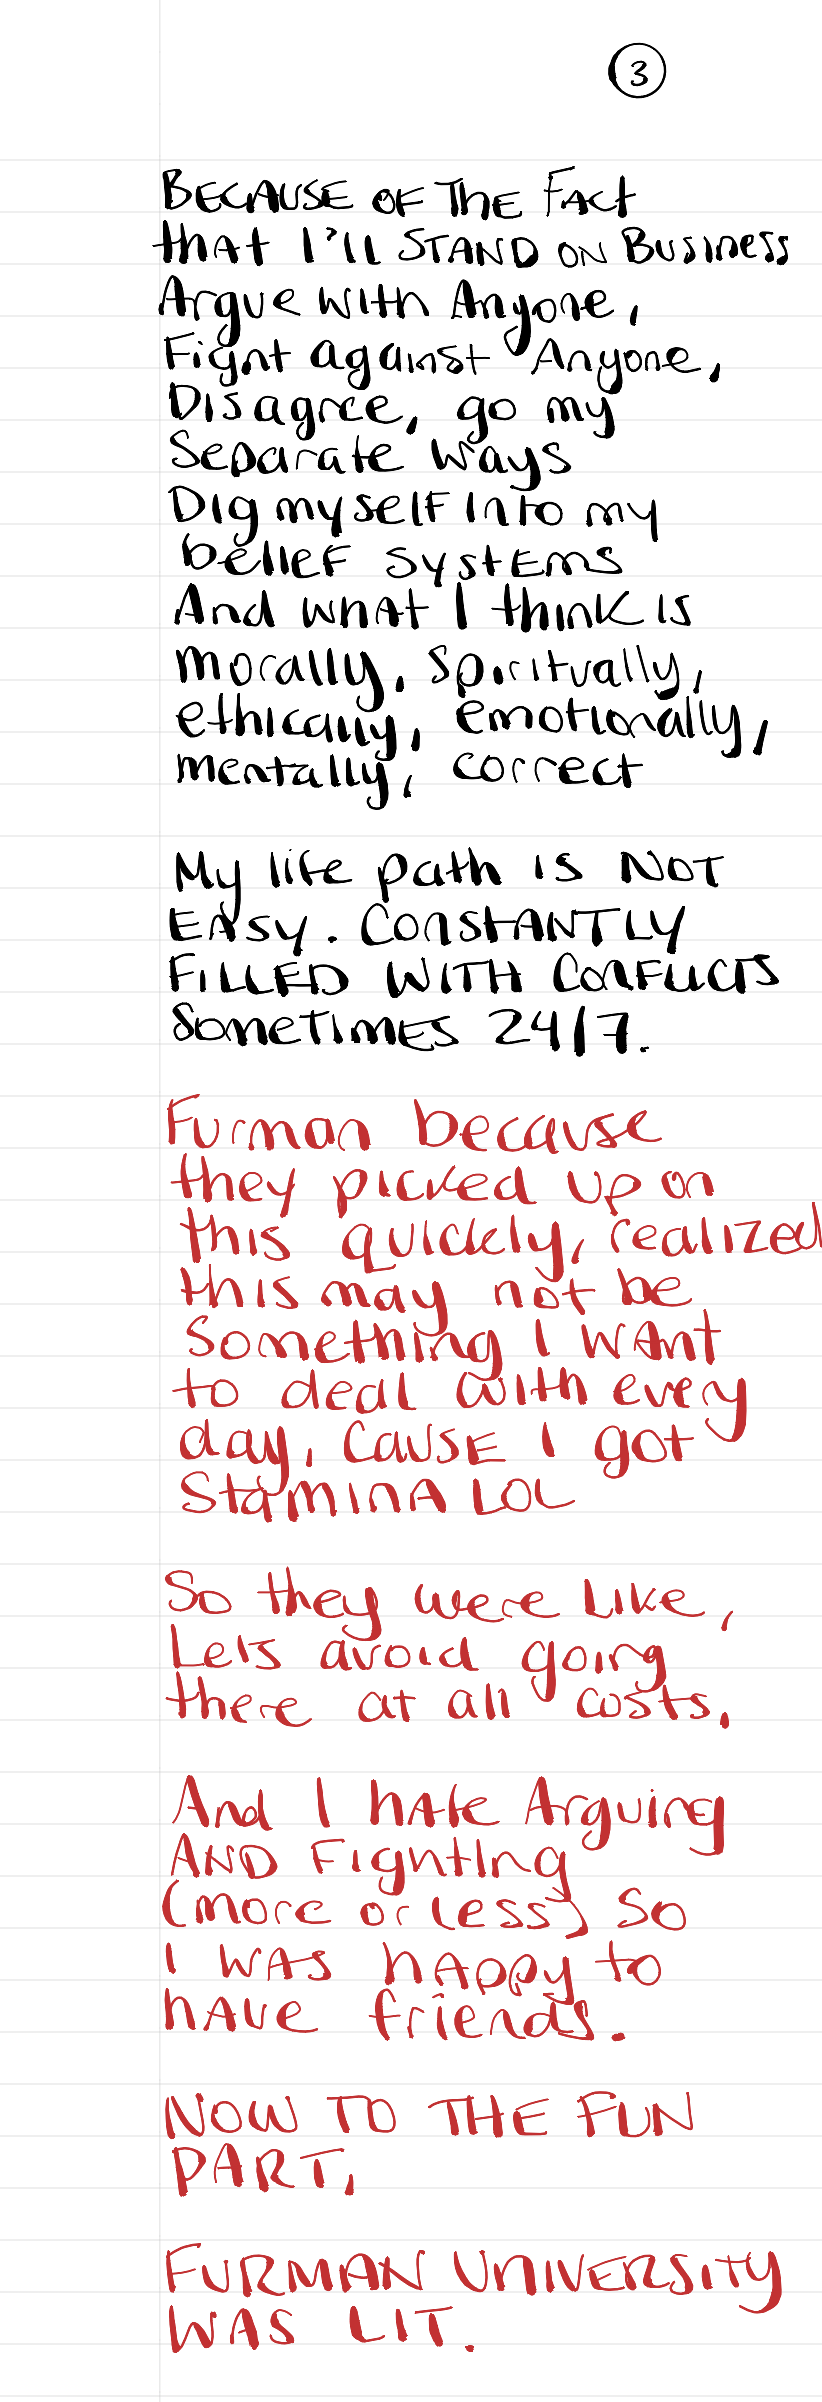 3
BECAUSE OF THE FACT
that I'll STAND ON Business
Argue with Anyone,
Fight against Anyone,
Disagree, go my
Separate Ways
Dig myself into my
belief systems
And what I think is
morally, spiritually,
ethically, emotionally,
mentally, correct
My life path is NOT
EASY. CONSTANTLY
FILLED WITH CONFLICTS
SOMETIMES 24/7.
Furman because
they picked up on
this quickly, realized
this may not be
something I WANT
to deal with every
day, CAUSE I got
STAMINA LOL
So they were Like,
Lets avoid going
there at all costs.
And I hate Arguing
AND Fighting
(more or less) So
I WAS hAppy to
hAve friends.
NOW TO THE FUN
PART,
FURMAN UNIVERSITY
WAS LIT.